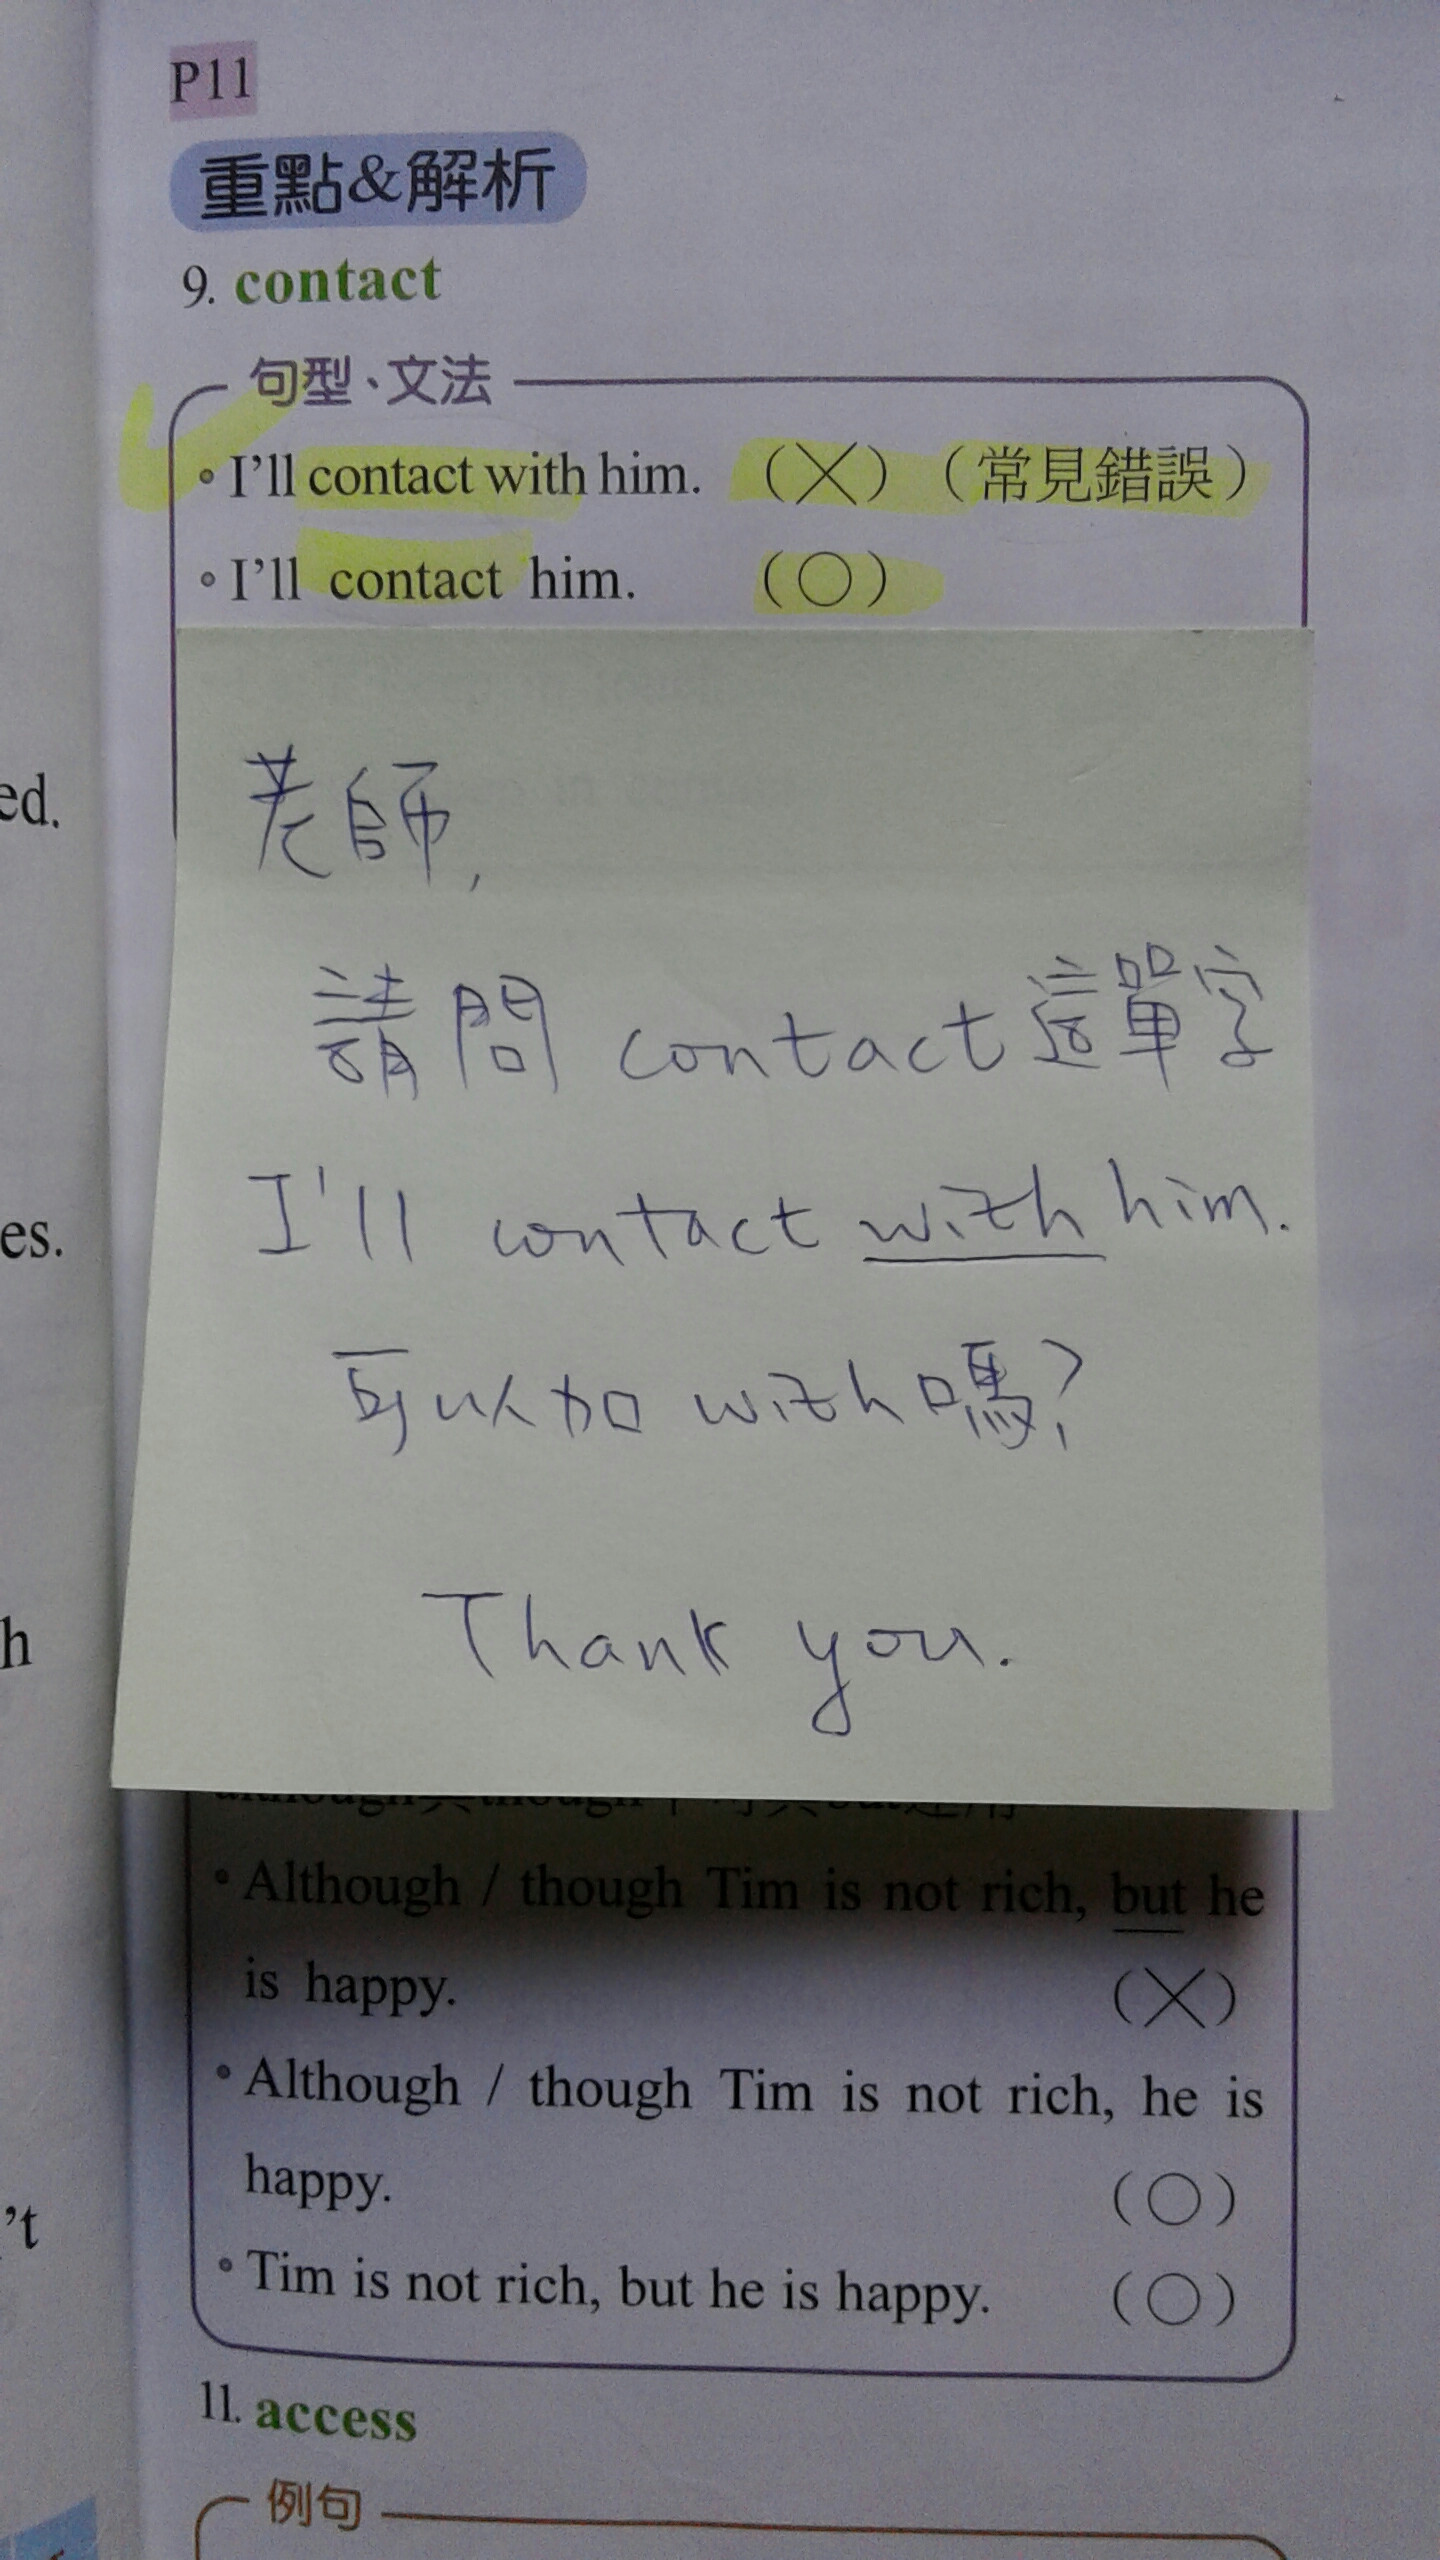 P11
重點&解析
9. contact
句型、文法
•I'll contact with him. （×）（常見錯誤）
•I'll contact him. （○）
ed.
老師,
請問 contact 這單字
es.
I'll contact with him.
可以加 with 嗎?
h
Thank you.
•Although / though Tim is not rich, but he
is happy. （×）
•Although / though Tim is not rich, he is
happy. （○）
't
•Tim is not rich, but he is happy. （○）
11. access
例句